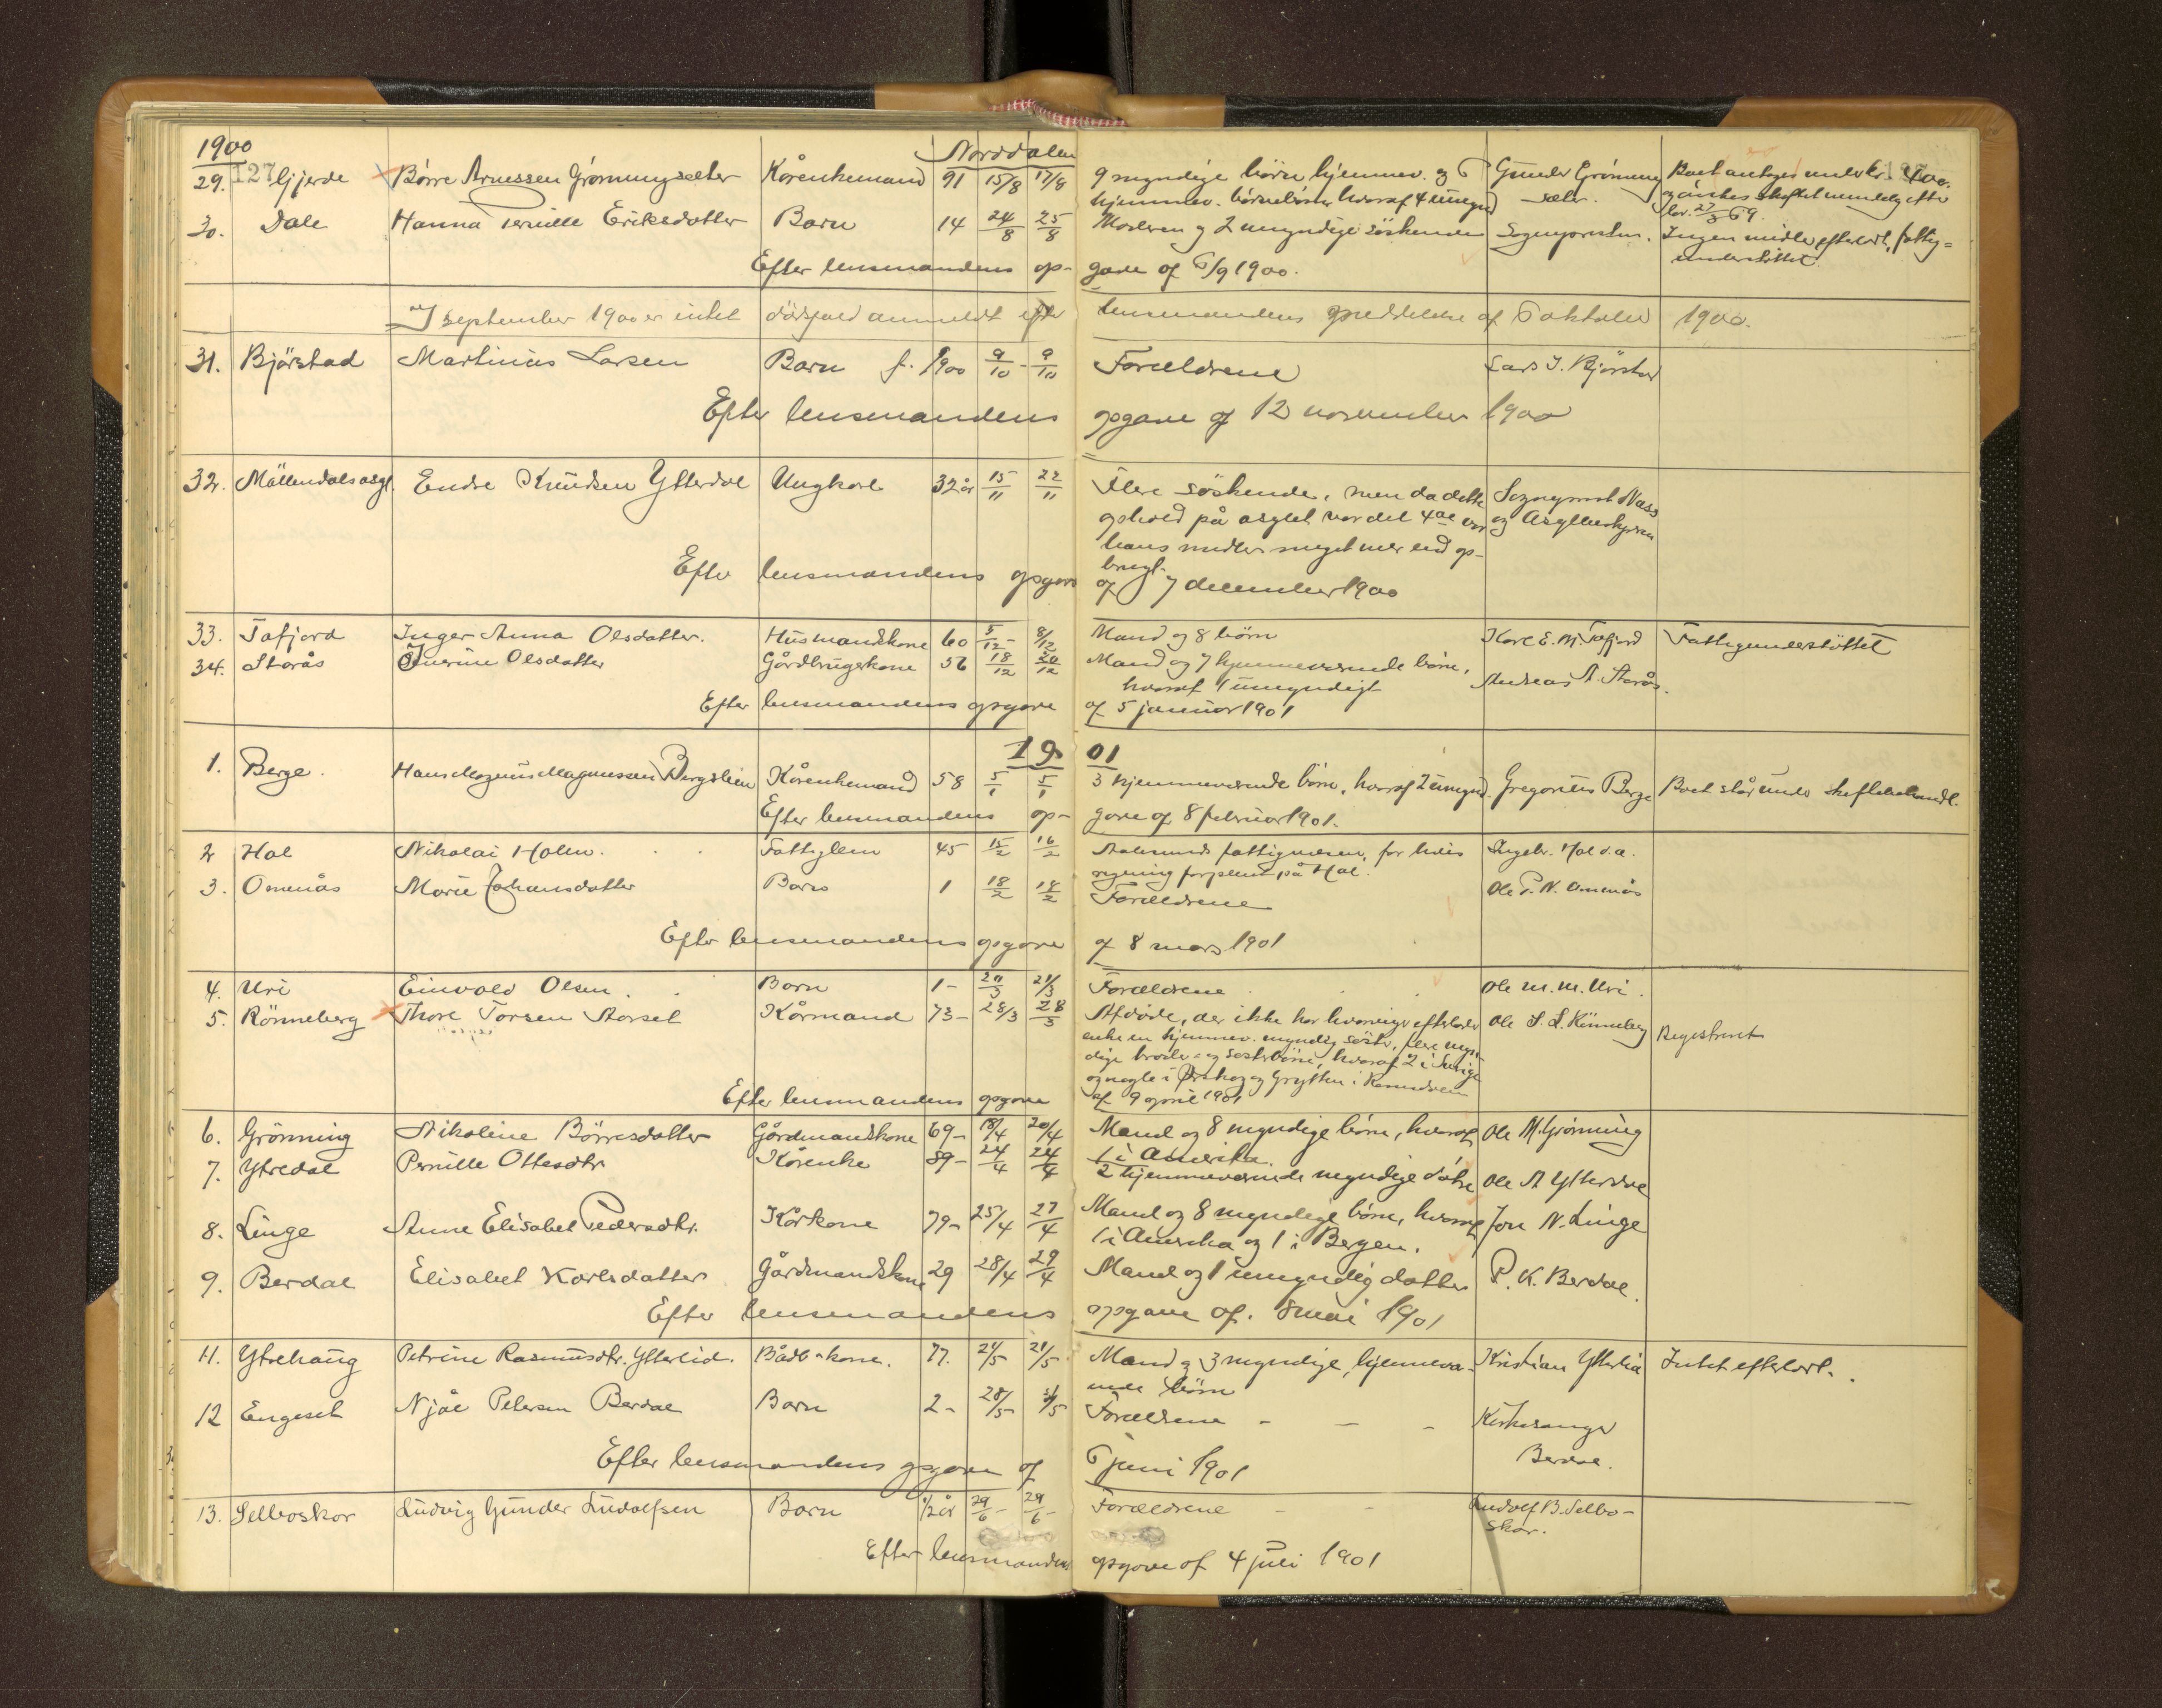 1900
Norddalen
29. 127 Gjerde Børre Arnessen Grønningsæter Kårenkemand 91 15/8 17/8 9 myndige børn hjemmev. og 6 Gunder Grønning Boet antages under kr. 400.
hjemmev. børnebørn hvoraf 4 umynd sæter. og ønskes skiftet mindelig efter
lov. 27/3 69.
30. Dale Hanna Pernille Eriksdatter Barn 14 24/8 25/8 Moderen og 2 umyndige söskende Sogneprsten. Ingen midler efterladt, fattig=
understöttet
Efter lensmandens op- gave af 6/9 1900.
I september 1900 er intet dödsfald anmeldt efter lensmandens meddelelse af 6 oktober 1900.
31. Bjørstad Martinus Larsen Barn f. 1900 9/10 - 9/10 Forældrene Lars J. Bjørstad
Efter lensmandens opgave af 12 november 1900
32. Möllendalsasyl. Endre Knudsen Ytterdal Ungkarl 32 år 15/11 22/11 Flere söskende, men da dette Sogneprest Nass
ophold på asylet var det 4de var og Asylbestyrer
hans midler meget mer end op-
brugt.
Efter lensmandens opgave af 7 december 1900
33. Tafjord Inger Anna Olsdatter. Husmandskone 60 5/12 - 8/12 Mand og 8 børn Karl E. M. Tafjord Fattigunderstöttet
34. Storås Olsdatter Gårdbrugerkone 56 18/12 20/12 Mand og 7 hjemmeværende børn, Andreas A. Storås.
hvoraf 1 umyndigt
Efter lensmandens opgave af 5 januar 1901
1901
1. Berge. Hans Mogens Magnussen Bergslien Kårenkemand 58 5/1 5/1 3 hjemmeværende børn, hvoraf 2 umynd. Gregorius Berge Boet står under skiftebehandl.
Efter lensmandens op- gave af 8 februar 1901.
2 Hol Nikolai Holm. Fattiglem 45 15/2 16/2 Aalesunds fattigvæsen, for hvis Ingebr. Hol d.æ.
regning forpleiet på Hol.
3. Omenås Marie Johansdatter Barn 1 18/2 18/2 Forældrene Ole P. N. Omenås
Efter lensmandens opgave af 8 mars 1901
4. Uri Einvald Olsen. Barn 1- 20/3 21/3 Forældrene Ole M. M. Uri.
5. Rönneberg Thore Torsen Storset Kårmand 73- 28/3 28/3 Afdøde, der ikke har livsarvinger efterlader Ole S. L. Rönneberg Registreret
enke en hjemmev. myndig söster, flere myn-
dige broder= og sösterbørn, hvoraf 2 i Sverige
og nogle i Ørskog og Grytten i Romsdalen
Efter lensmandens opgave af 9 april 1901
6. Grönning Nikoline Børresdatter Gårdmandskone 69- 18/4 20/4 Mand og 8 myndige børn, hvoraf Ole M. Grönning
1 i Amerika.
7. Ytredal Pernille Ottesdtr. Kårenke 89- 24/4 24/4 2 hjemmeværende myndige døtre Ole A Ytterdal
8. Linge Anne Elisabet Pedersdtr. Kårkone 79- 25/4 27/4 Mand og 8 myndige børn, hvoraf Jon N. Linge
1 i Amerika og 1 i Bergen.
9. Berdal Elisabet Karlsdatter Gårdmandskone 29 28/4 29/4 Mand og 1 umyndig datter P. K. Berdal.
Efter lensmandens opgave af. 8 mai 1901
11. Ytrehaug Petrine Rasmusdtr. Ytterlid. Bådb-kone. 77. 21/5 21/5 Mand og 3 myndige, hjemmevæ- Kristian Ytterlid Intet efterladt.
rende børn
12 Engeset Njål Petersen Berdal Barn 2- 28/5 31/5 Forældrene - - - Kirkesanger
Berdal.
Efter lensmandens opgave af 6 juni 1901
13. Selboskar Ludvig Gunder Ludolfsen Barn 1/2 år 29/6 - 29/6 - Forældrene - - Ludolf B. Selbo-
skar.
Efter lensmandens opgave af 4 juli 1901